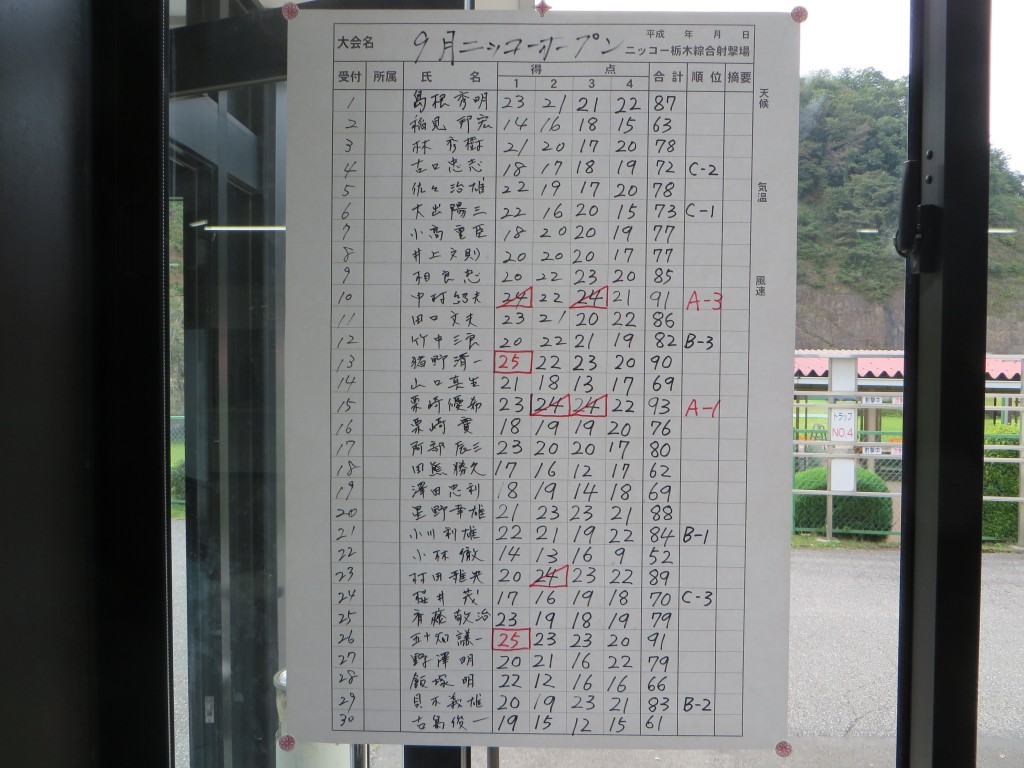 平成 年 月 日
大会名 9月ニッコーオープン ニッコー栃木綜合射撃場
受付 所属 氏 名 得 点 合計 順位 摘要
1 2 3 4
1 島根秀明 23 21 21 22 87
2 稲見邦宏 14 16 18 15 63
3 林秀樹 21 20 17 20 78
4 古口忠志 18 17 18 19 72 C-2
5 佐々治雄 22 19 17 20 78
6 大出陽三 22 16 20 15 73 C-1
7 小高重臣 18 20 20 19 77
8 井上文則 20 20 20 17 77
9 相良忠 20 22 23 20 85
10 中村 夫 24 22 24 21 91 A-3
11 田口文夫 23 21 20 22 86
12 竹中三 20 22 21 19 82 B-3
13 猪野清一 25 22 23 20 90
14 山口真生 21 18 13 17 69
15 栗崎優希 23 24 24 22 93 A-1
16 栗崎實 18 19 19 20 76
17 阿部辰三 23 20 20 17 80
18 田 勝久 17 16 12 17 62
19 澤田忠利 18 19 14 18 69
20 星野幸雄 21 23 23 21 88
21 小川利雄 22 21 19 22 84 B-1
22 小林徹 14 13 16 9 52
23 村田雅央 20 24 23 22 89
24 桜井茂 17 16 19 18 70 C-3
25 斉藤敬治 23 19 18 19 79
26 五十畑謙一 25 23 23 20 91
27 野澤明 20 21 16 22 79
28 飯塚明 22 12 16 16 66
29 義雄 20 19 23 21 83 B-2
30 古島俊一 19 15 12 15 61
天候
気温
風速
トラップ
NO.4